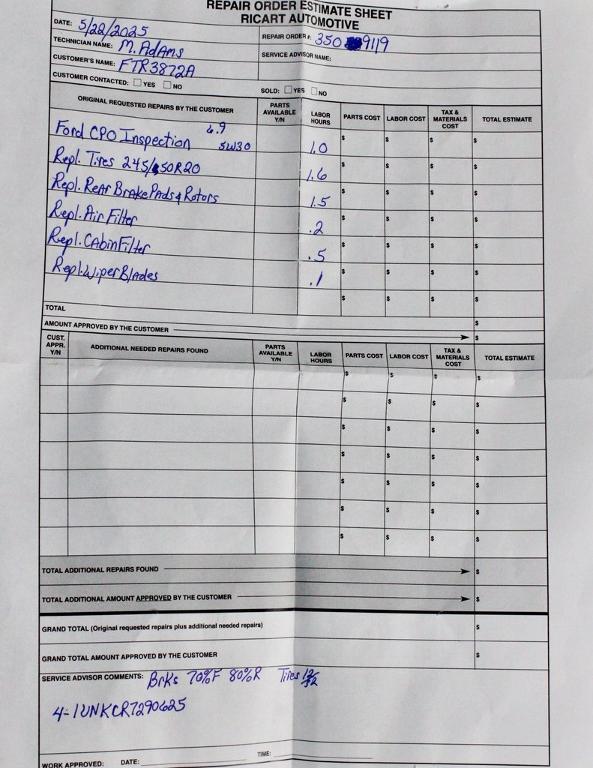 REPAIR ORDER ESTIMATE SHEET
RICART AUTOMOTIVE
DATE: 5/22/2025
REPAIR ORDER#: 350 9119
TECHNICIAN NAME: M. Adams
SERVICE ADVISOR NAME:
CUSTOMER'S NAME: FTR3872A
CUSTOMER CONTACTED: YES NO
SOLD: YES NO
ORIGINAL REQUESTED REPAIRS BY THE CUSTOMER PARTS AVAILABLE Y/N LABOR HOURS PARTS COST LABOR COST TAX & MATERIALS COST TOTAL ESTIMATE
Ford CPO Inspection 6.9 5W30 1.0 $ $ $ $
Repl. Tires 245/50R20 1.6 $ $ $ $
Repl. Rear Brake Pads & Rotors 1.5 $ $ $ $
Repl. Air Filter .2 $ $ $ $
Repl. Cabin Filter .5 $ $ $ $
Repl. Wiper Blades .1 $ $ $ $
$ $ $ $
TOTAL $
AMOUNT APPROVED BY THE CUSTOMER $
CUST. APPR. Y/N ADDITIONAL NEEDED REPAIRS FOUND PARTS AVAILABLE Y/N LABOR HOURS PARTS COST LABOR COST TAX & MATERIALS COST TOTAL ESTIMATE
$ $ $ $
$ $ $ $
$ $ $ $
$ $ $ $
$ $ $ $
$ $ $ $
$ $ $ $
TOTAL ADDITIONAL REPAIRS FOUND $
TOTAL ADDITIONAL AMOUNT APPROVED BY THE CUSTOMER $
GRAND TOTAL (Original requested repairs plus additional needed repairs) $
GRAND TOTAL AMOUNT APPROVED BY THE CUSTOMER $
SERVICE ADVISOR COMMENTS: Brks 70%F 80%R Tires 12/32
4-1UNKCR7290625
WORK APPROVED: DATE: TIME: